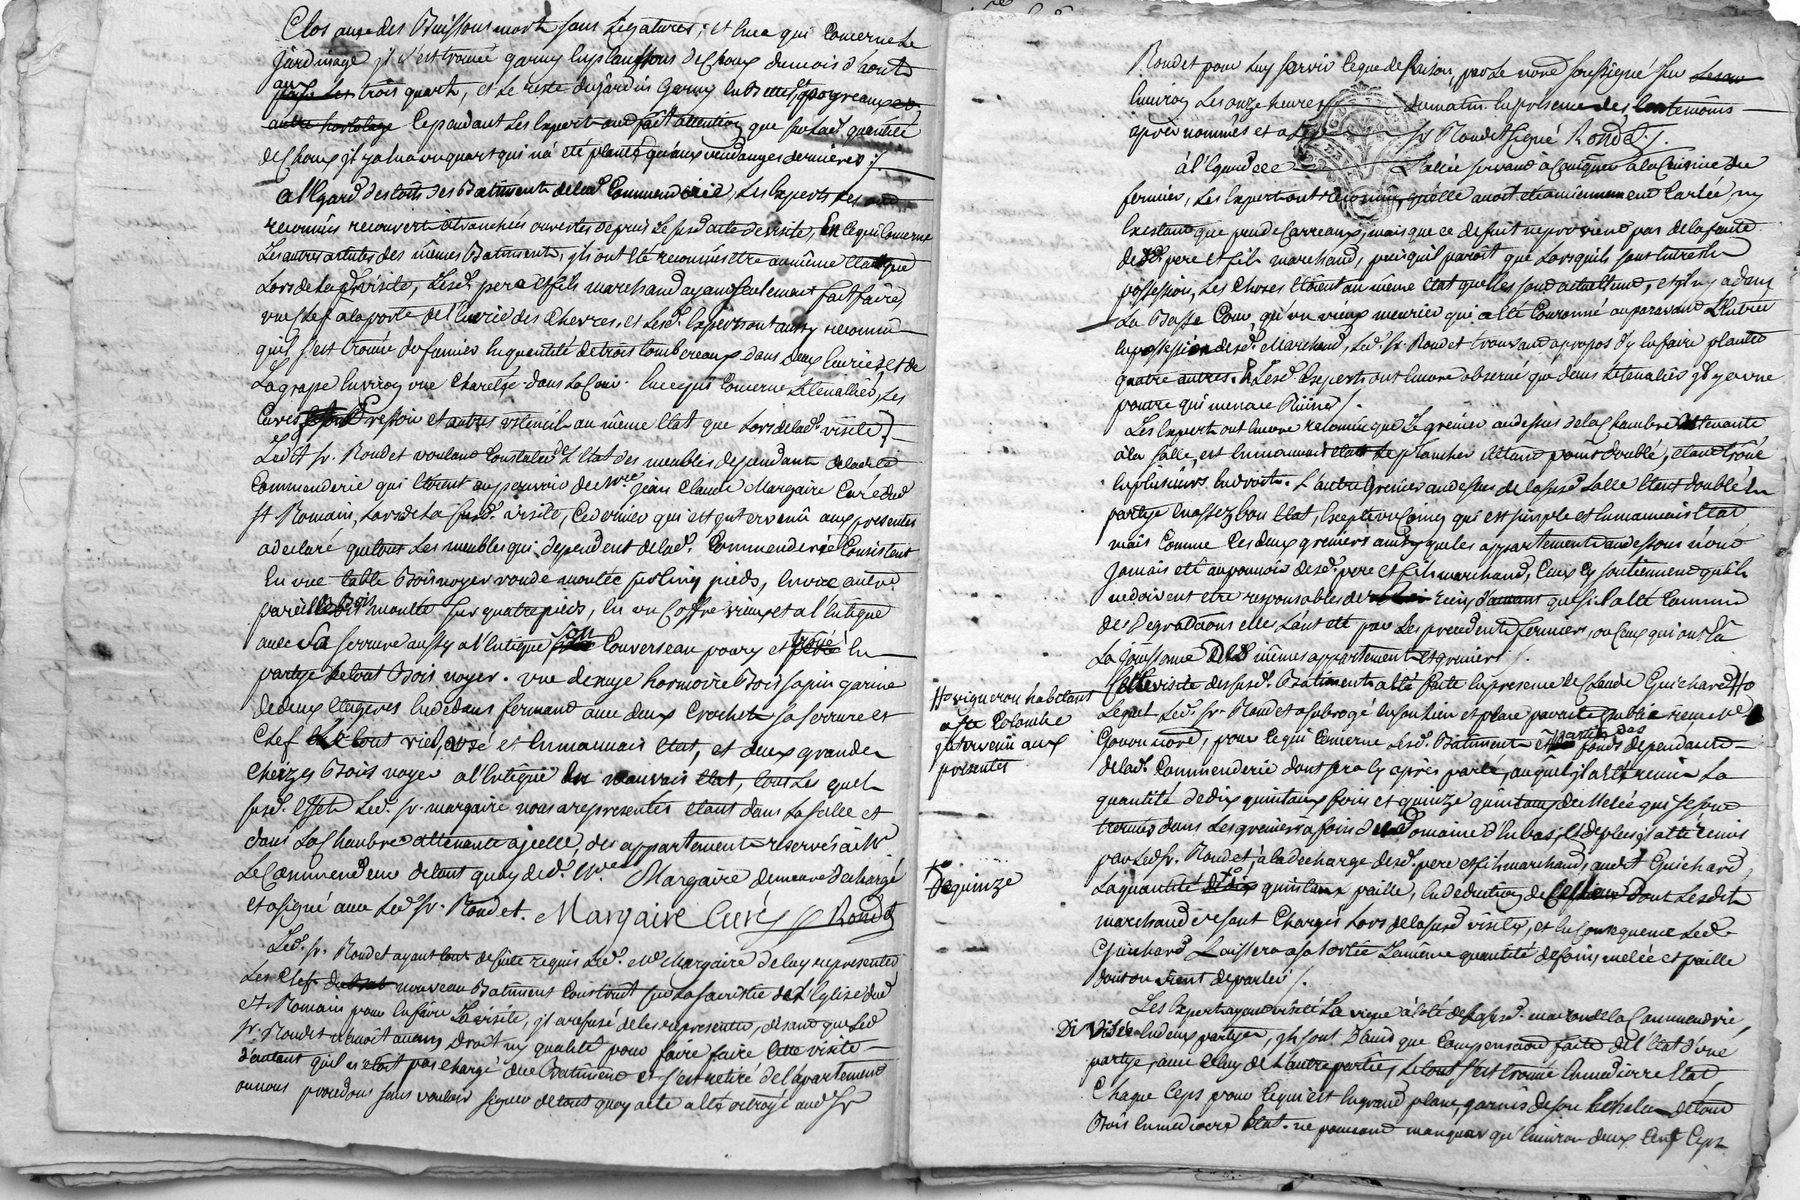 Clos avec des Buissons morts sans Ligatures, et en ce qui Concerne Le
jardinage il s'est trouvé garny en plansons de Choux du mois d'août
aux trois quart, et Le reste du jardin Garny en Bettes, porreaux et
autre hortolage Cependant Les Experts ont fait attention que sur lad. quantité
de Choux il y en a un quart qui n'a été planté qu'aux vendanges dernieres ./.
A l'Egard des toits des Batiments de lad. Commenderie, Les Experts Les ont
reconnus recouverts et tranchés ouvertes depuis Le susd. acte de visite, En ce qui Concerne
Les autres articles des mêmes Batiments, ils ont été reconnus être au même Etat que
Lors de La de visite, Lesd. pere et fils marchand ayant seulement fait faire
une Clef a la porte de l'Ecurie des Chevres. et Lesd. Experts ont aussy reconnu
qu'il s'est trouvé du fumier en quantité de trois tombereaux dans deux Ecuries, et de
La grappe Environ une Charetée dans La Cour. En ce qui Concerne Le tenallier, Les
Cuves Pressoir et autres ustensils au même Etat que Lors de lad. visite./.
Et Led. Sr. Rondet voulant Constater L'Etat des meubles dependants de lad.
Commenderie qui étoient au pouvoir de Mre. jean Claude Margaire Curé dud.
St. Romain, Lors de La susd. visite, Ce dernier qui est intervenû aux presentes
a declaré que tous Les meubles qui dependent de lad. Commenderie Consistent
En une table Bois noyer ronde montée sur Cinq pieds, En une autre
pareille Bois montée sur quatre pieds, En un Coffre vieux et a l'Entique
avec sa serrure aussy a l'Entique son Couverseau poury et troué en
partye Le tout Bois noyer. une de nuye hormoire Bois sapin garnie
de deux Etageres En dedans fermant avec deux Crochets sa serrure et
Clef Le tout vieil, usé et En mauvais Etat, et deux grandes
Cheizes Bois noyer a l'Entique En mauvais Etat, tous Les quels
susd. Effets Led. Sr. margaire nous a representés etant dans La salle et
dans La Chambre attenante a jcelle, des appartements reservés à Mr
Le Commendeur de tout quoy led. Mre. Margaire demeure dechargé
et a signé avec Led. Sr. Rondet. Margaire Curé Rondet
Led. Sr. Rondet ayant tout de suite requis Led. Mre Margaire de luy representer
Les Clefs du nouveau Batiment Construit sur La sacristie de L'Eglise dud
St. Romain pour En faire La visite, il a refusé de les representer, disant que Led
Sr. Rondet n'avoit aucun Droit ny qualité pour faire faire Cette visite
d'autant qu'il n'etoit pas Chargé dud Batiment et s'est retiré de l'apartement
ou nous procedons sans vouloir signer de tout quoy acte a été octroyé aud Sr
Rondet pour Luy servir Ce que de Raison, par Le nore soussigné sur
Environ Les onze heures du matin En presence des temoins
aprés nommés et a Led. Sr Rondet signé Rondet ./.
à l'Egard de L'allée servant à à la Cuisine du
fermier, Les Experts ont reconnu qu'elle avoit été anciennement Carlée, ny
Existant que peu de Carreaux, mais que ce defait ne provient pas de la faute
desd. pere et fils marchand, puisqu'il paroit que Lorsqu'ils sont Entrés En
possession, Les Choses étoient au même Etat quelles sont actuellement, et il n'y a dans
La Basse Cour, qu'un vieux meurier qui a été Couronné auparavant L'Entrée
En possession desd. Marchand, Led. Sr. Rondet trouvant apropos d'y En faire planter
quatre autres. Et Lesd. Experts ont Encore observé que dans Le tenalier il y a une
poutre qui menace Ruine ./.
Les Experts ont Encore reconnu que Le grénier au dessus de la Chambre attenante
à la salle, est En mauvais état Le plancher Etant point doublé, étant troué
En plusieurs Endroits. L'autre Grenier au dessus de la susd. salle Etant doublé En
partye En assez bon Etat, Excepté un Coing qui est simple et En mauvais Etat
mais Comme Ces deux greniers ainsy que les appartements au dessous n'ont
Jamais eté au pouvoir desd. pere et fils marchand, Ceux cy soutiennent qu'ils
ne doivent etre responsables de rien d'autant que s'il a été Commis
des Degradations elles l'ont été par Les precedents fermiers, ou Ceux qui ont Eû
La Jouissance desd mêmes appartements et greniers ./.
Cette visite desd. susd. Batiments a été faite En presence de Claude Guichard #o
Lequel Led. Sr. Rondet a subrogé En son Lieu et place par acte publié rieme Me
Gonon nore, pour Ce qui Concerne Lesd. Batiments et partie des fonds dependants
de lad. Commenderie dont sera Cy après parlé, auquel il a Eté remis La
quantité de dix quintaux foin et quinze quintaux de Melée qui se sont
trouvés dans Les greniers à foin du Domaine d'En bas, Et de plus il a été remis
par Led Sr. Rondet, à la decharge desd. pere et fils marchand, aud Guichard
La quantité quintaux paille, En deduction de Dont Lesdits
marchand se sont Chargés Lors de la susd visite, et En Consequence Led.
Guichard Laissera a sa sortie La même quantité de foin, melée et paille
dont on vient de parler ./.
Les Experts ayant visité La vigne à Coté de La susd. maison de la Commendrie,
Divisée En deux partyes, ils sont D'avis que Compensation faite de l'Etat d'une
partye, avec Celuy de L'autre partie, Le tout s'est trouvé En mediocre Etat
Chaque Ceps pour Ce qui est En grand plant, garnis de son Echalas, de tout
Bois En mediocre Etat. ne pouvant manquer qu'Environ deux Cent Ceps
#o vigneron habitant
a ste Colombe
intervenû aux
presentes
#o
De quinze